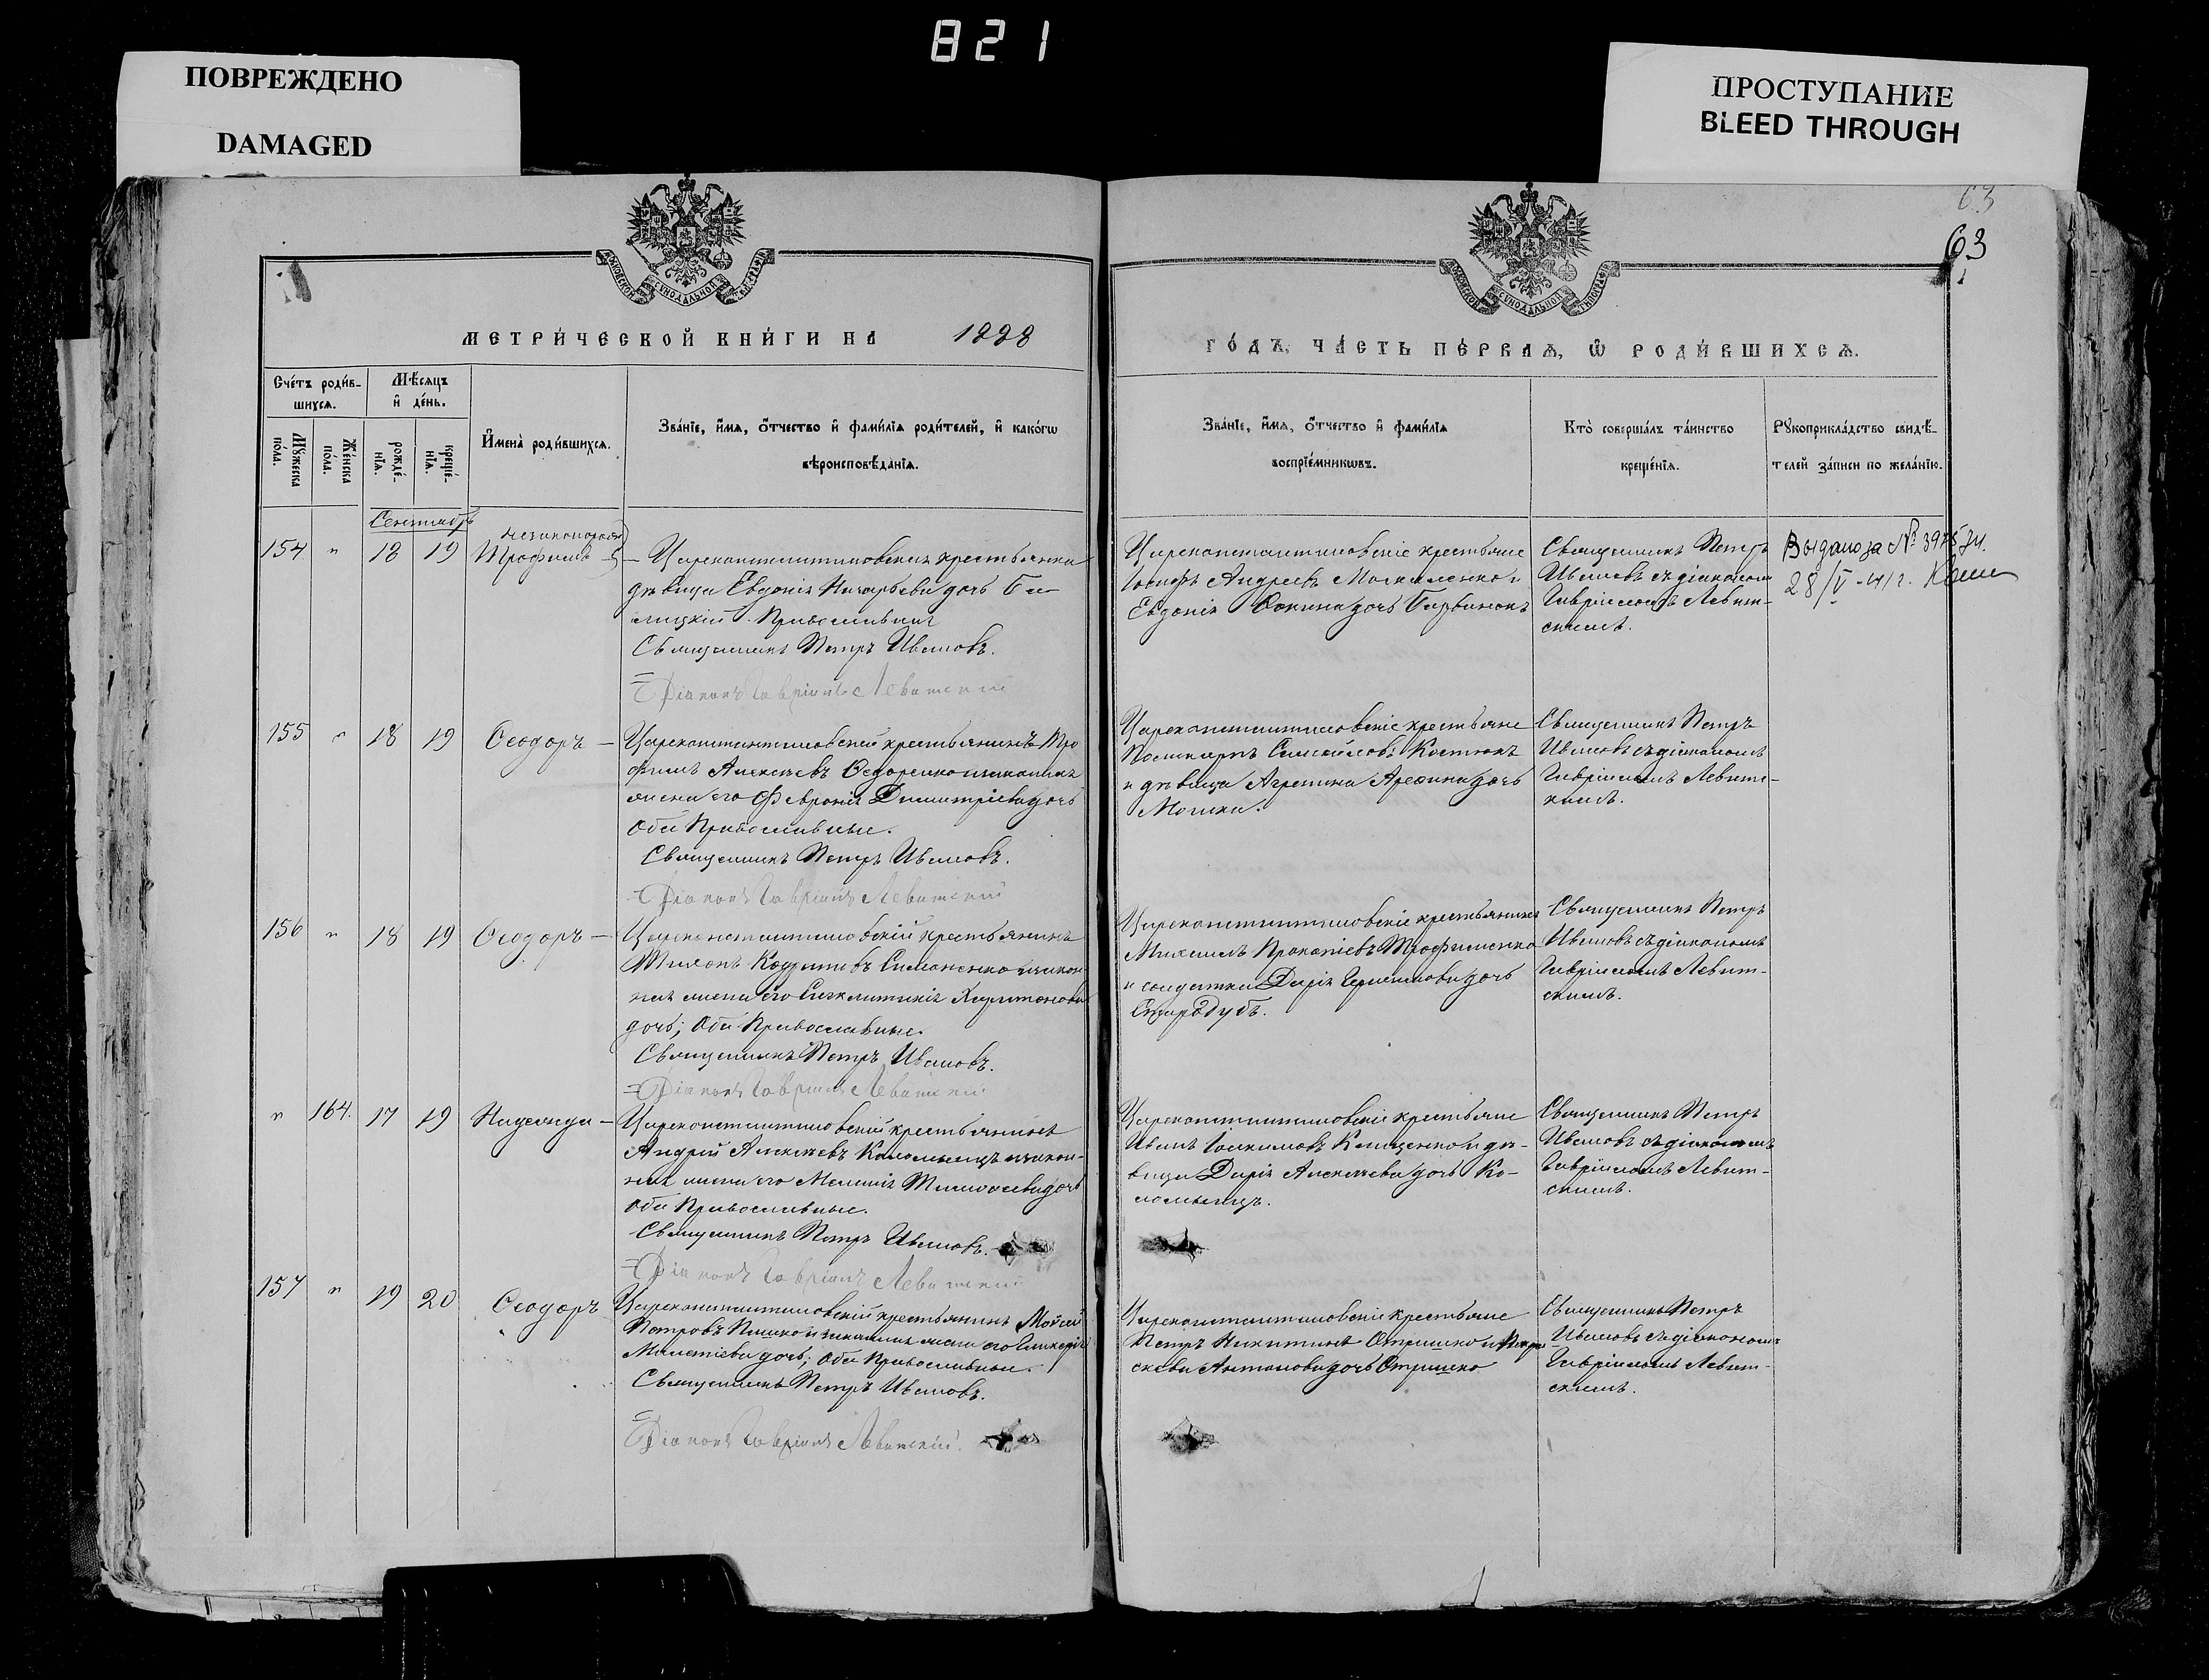 821
ПОВРЕЖДЕНО
DAMAGED
ПРОСТУПАНИЕ
BLEED THROUGH
63
63
МЕТРИ́ЧЕСКОЙ КНИ́ГИ НА 1888
ГО́ДЪ, ЧА́СТЬ ПЕ́РВАѦ, Ѽ РОДИ́ВШИХСѦ.
Сче́тъ роди́в-
шихсѧ.
Мѣ́сѧцъ
и҆ де́нь.
Мꙋ́жеска по́ла.
Же́нска по́ла.
рожде́-нїѧ.
креще́-нїѧ.
И҆мена̀ роди́вшихсѧ.
Зва́нїе, и҆́мѧ, ѻ҆́тчество и҆ фами́лїѧ роди́телей, и҆ како́гѡ
вѣроисповѣ́данїѧ.
Зва́нїе, и҆́мѧ, ѻ҆́тчество и҆ фами́лїѧ
воспрїе́мникѡвъ.
Кто̀ соверша́лъ та́инство
креще́нїѧ.
Рꙋкоприкла́дство свидѣ́-
телей за́писи по жела́нїю.
Сентябрь
154 " 18 19 Трофимъ
Цареконстантиновская крестьянка
дѣвица Евдокія Назарьева дочь Би-
лицкій. Православная
Священникъ Петръ Ивановъ.
Діаконъ Гавріилъ Левитскій
Цареконстантиновскіе крестьяне
Іосифъ Андреевъ Москаленко и
Евдокія Фокина дочь Барвинокъ
Священникъ Петръ
Ивановъ съ діакономъ
Гавріиломъ Левит-
скимъ.
Выдано за №
28/V-41 г.
155 " 18 19 Ѳеодоръ
Цареконстантиновскій крестьянинъ Тро
фимъ Алексѣевъ Ѳедоренко и законная
жена его Февронія Димитріева дочь
Оба Православные.
Священникъ Петръ Ивановъ.
Діаконъ Гавріилъ Левитскій
Цареконстантиновскіе крестьяне
Поликарпъ Самойловъ Костюкъ
и дѣвица Агрепина Арефина дочь
Мошка.
Священникъ Петръ
Ивановъ съ діакономъ
Гавріиломъ Левитс-
кимъ.
156 " 18 19 Ѳеодоръ
Цареконстантиновскій крестьянинъ
Тихонъ Кодратовъ Симоненко и закон-
ная жена его Синклитикія Харитонова
дочь; Оба Православные.
Священникъ Петръ Ивановъ.
Діаконъ Гавріилъ Левитскій
Цареконстантиновскіе крестьянинъ
Михаилъ Прокопіевъ Трофименко
и солдатка Дарія Герасимова дочь
Стародубъ.
Священникъ Петръ
Ивановъ съ діакономъ
Гавріиломъ Левит-
скимъ.
" 164. 17 19 Надежда
Цареконстантиновскій крестьянинъ
Андрей Алексѣевъ Коломыецъ и закон-
ная жена его Меланія Тимофеева дочь
Оба Православные.
Священникъ Петръ Ивановъ.
Діаконъ Гавріилъ Левитскій
Цареконстантиновскіе крестьяне
Иванъ Іоакимовъ Клищенко и дѣ-
вица Дарія Алексѣева дочь Ко-
ломыецъ.
Священникъ Петръ
Ивановъ съ діакономъ
Гавріиломъ Левит-
скимъ.
157 " 19 20 Ѳеодоръ
Цареконстантиновскій крестьянинъ Мойсей
Петровъ Пишко и законная жена его Гликерія
Мелетіева дочь; Оба Православные.
Священникъ Петръ Ивановъ.
Діаконъ Гавріилъ Левитскій.
Цареконстантиновскіе крестьяне
Петръ Никитинъ Отришко и Пара-
скева Антонова дочь Отришко
Священникъ Петръ
Ивановъ съ діакономъ
Гавріиломъ Левит-
скимъ.